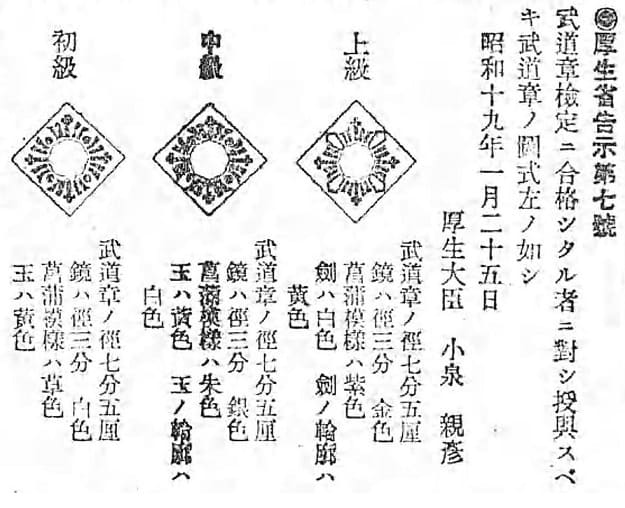 ◉厚生省告示第七號
武道章檢定ニ合格シタル者ニ對シ授與スベ
キ武道章ノ圖式左ノ如シ
昭和十九年一月二十五日
厚生大臣 小泉 親彥
上級
武道章ノ徑七分五厘
鏡ハ徑三分 金色
菖蒲模樣ハ紫色
劍ハ白色 劍ノ輪廓ハ
黃色
中級
武道章ノ徑七分五厘
鏡ハ徑三分 銀色
菖蒲模樣ハ朱色
玉ハ黃色 玉ノ輪廓ハ
白色
初級
武道章ノ徑七分五厘
鏡ハ徑三分 白色
菖蒲模樣ハ草色
玉ハ黃色